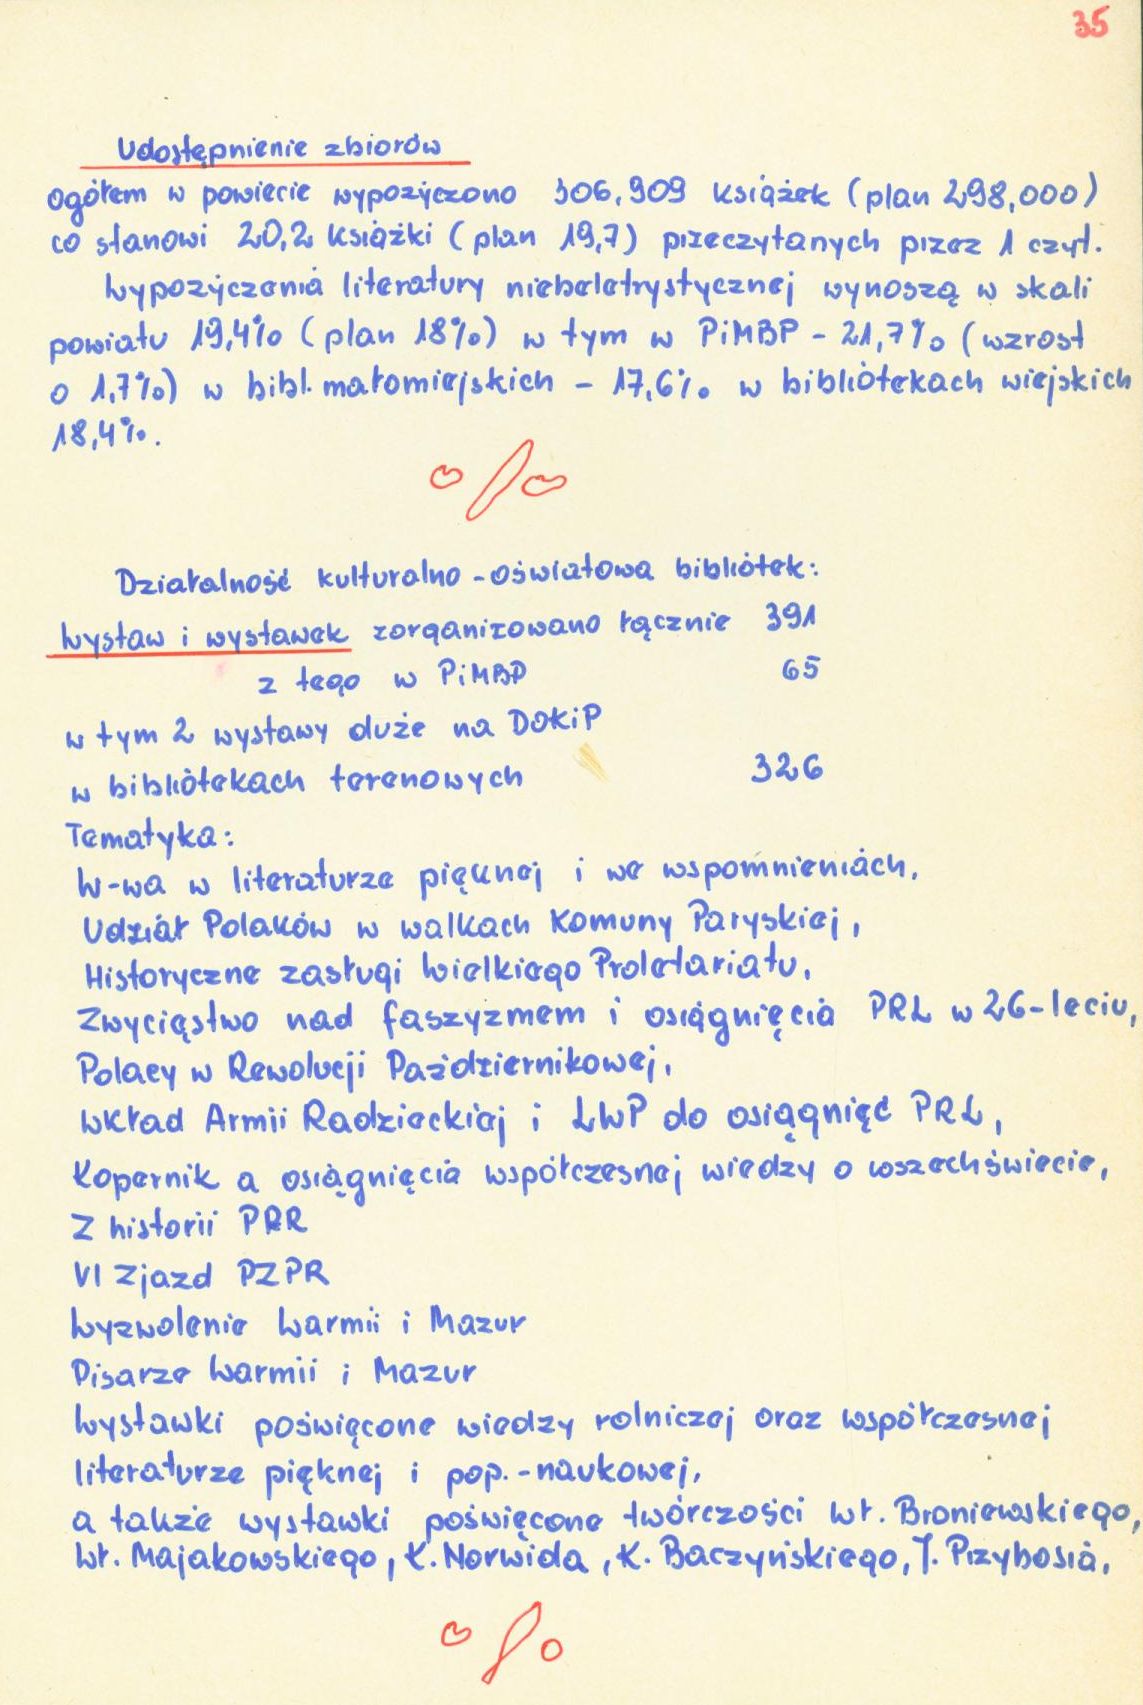 35
Udostępnienie zbiorów
Ogółem w powiecie wypożyczono 306,909 książek (plan 298,000)
co stanowi 20,2 książki (plan 19,7) przeczytanych przez 1 czyt.
Wypożyczenia literatury niebeletrystycznej wynoszą w skali
powiatu 19,4% (plan 18%) w tym w PiMBP - 21,7% (wzrost
o 1,7%) w bibl. małomiejskich - 17,6% w bibliotekach wiejskich
18,4%.
Działalność kulturalno-oświatowa bibliotek:
Wystaw i wystawek zorganizowano łącznie 391
z tego w PiMBP 65
w tym 2 wystawy duże na DOKiP
w bibliotekach terenowych 326
Tematyka:
W-wa w literaturze pięknej i we wspomnieniach,
Udział Polaków w walkach Komuny Paryskiej,
Historyczne zasługi Wielkiego Proletariatu,
Zwycięstwo nad faszyzmem i osiągnięcia PRL w 26-leciu,
Polacy w Rewolucji Październikowej,
Wkład Armii Radzieckiej i LWP do osiągnięć PRL,
Kopernik a osiągnięcia współczesnej wiedzy o wszechświecie,
Z historii PPR
VI Zjazd PZPR
Wyzwolenie Warmii i Mazur
Pisarze Warmii i Mazur
Wystawki poświęcone wiedzy rolniczej oraz współczesnej
literaturze pięknej i pop.-naukowej,
a także wystawki poświęcone twórczości Wł. Broniewskiego,
Wł. Majakowskiego, K. Norwida, K. Baczyńskiego, J. Przybosia,